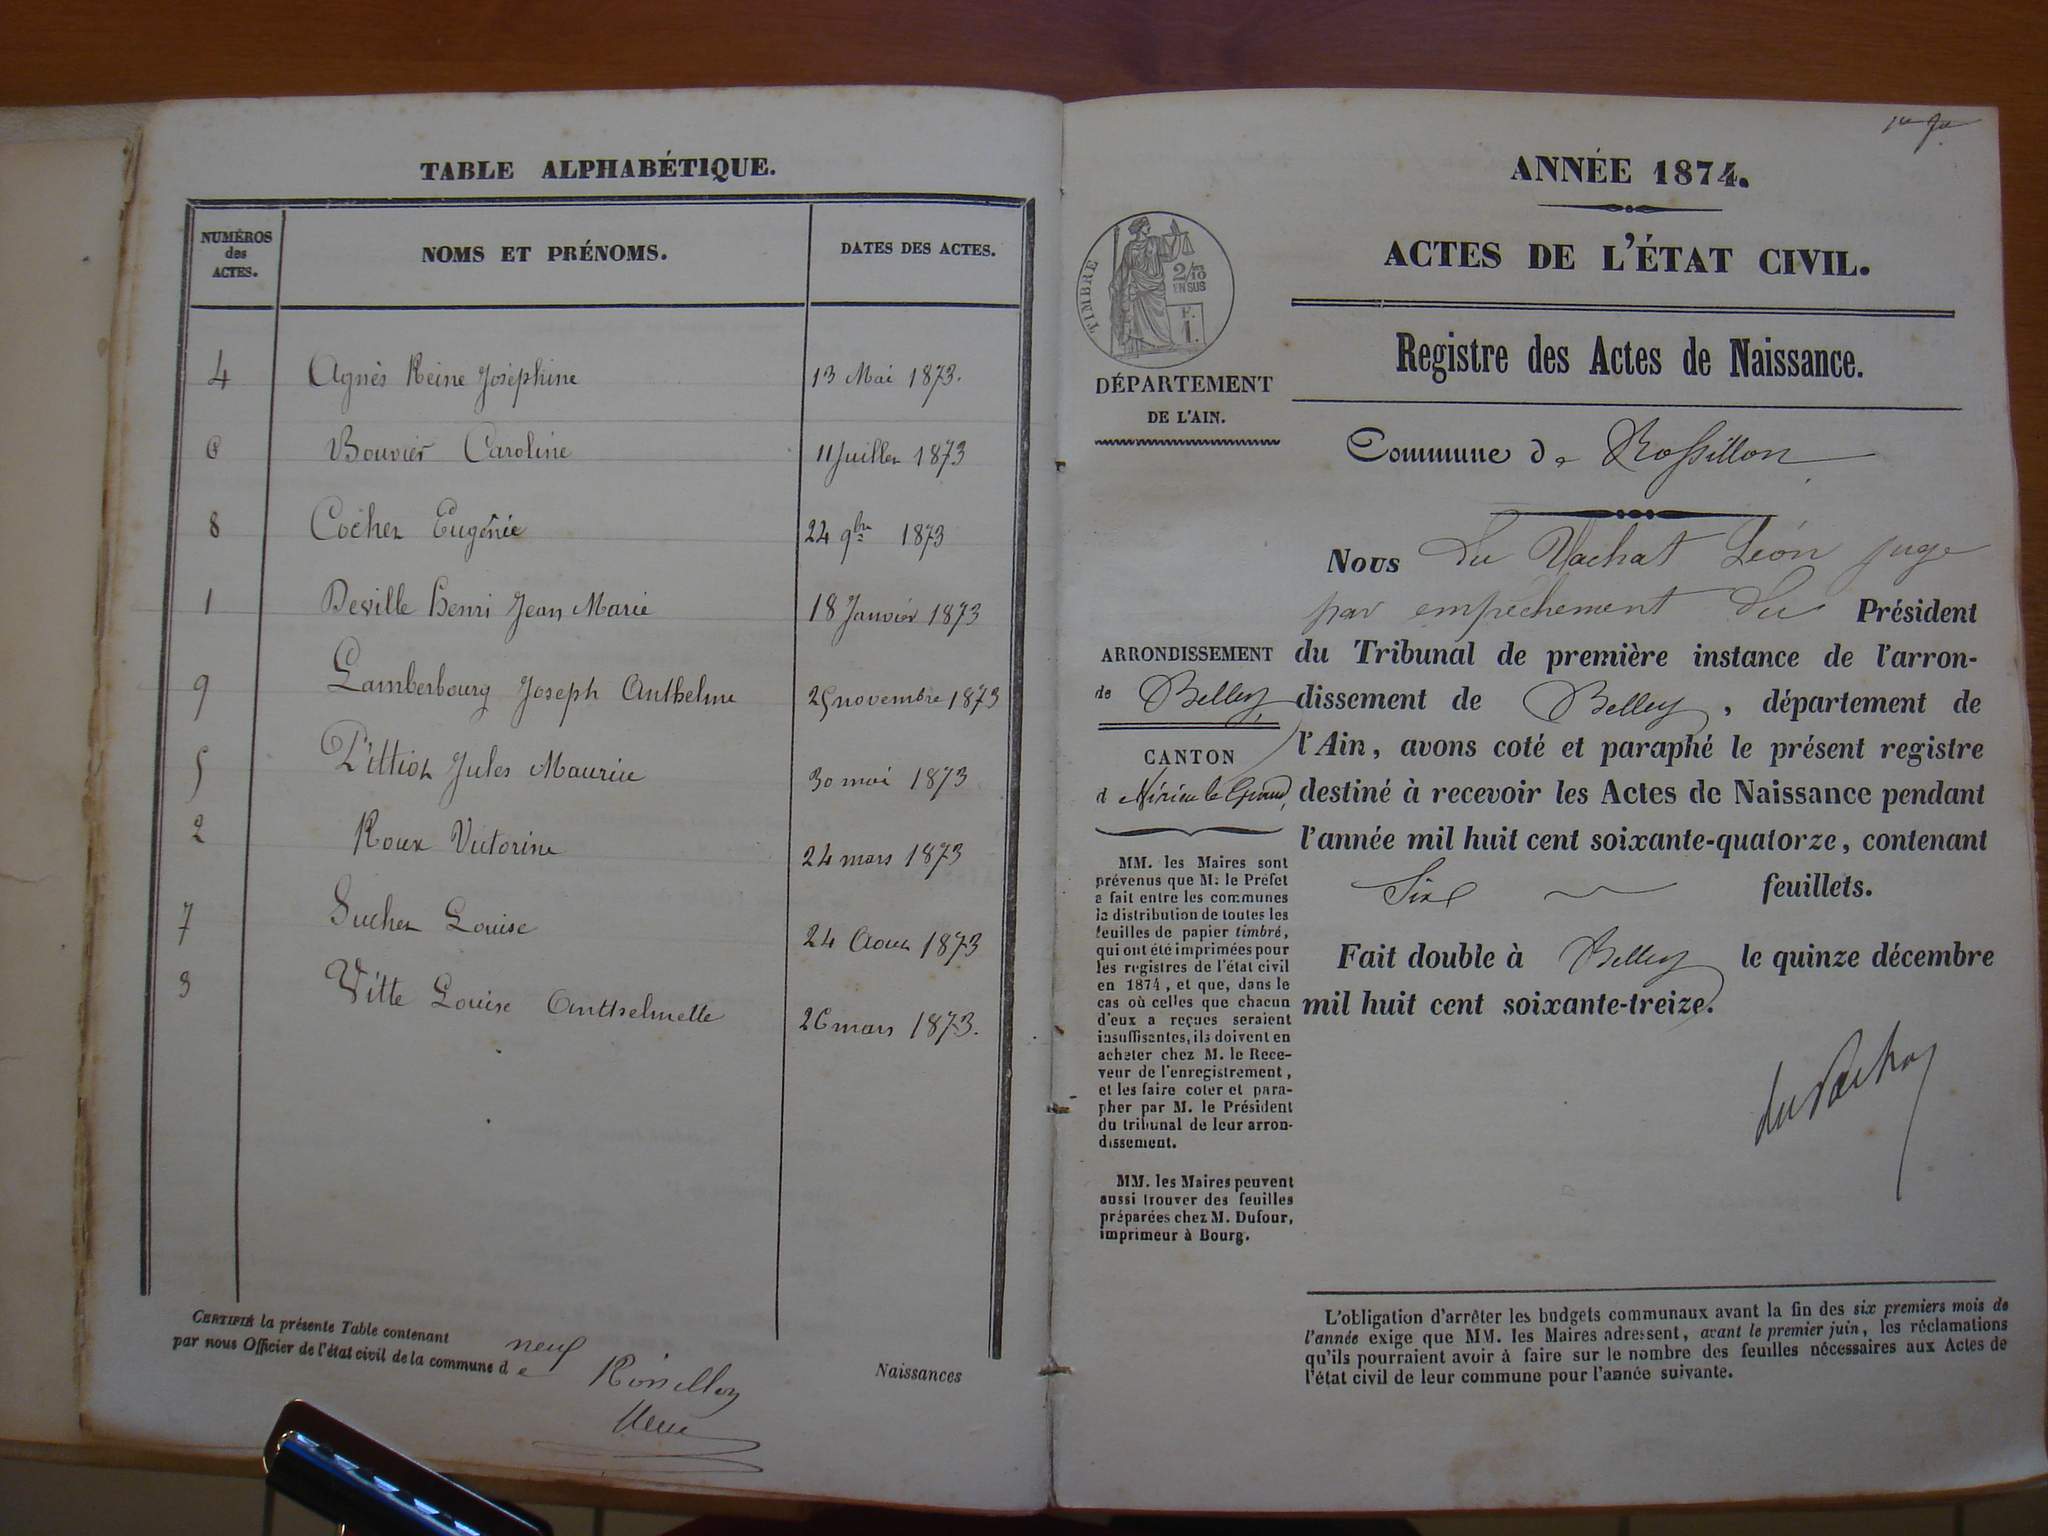 TABLE ALPHABÉTIQUE.
NUMÉROS des ACTES. NOMS ET PRÉNOMS. DATES DES ACTES.
4 Agnès Reine Joséphine 13 Mai 1873.
6 Bouvier Caroline 11 Juillet 1873
8 Cochet Eugénie 24 9bre 1873
1 Deville Henri Jean Marie 18 Janvier 1873
9 Lamberbourg Joseph Anthelme 25 novembre 1873
5 Pittion Jules Maurice 30 mai 1873
2 Roux Victorine 24 mars 1873
7 Suchet Louise 24 Aout 1873
3 Vitte Louise Anthelmette 26 mars 1873.
CERTIFIÉ la présente Table contenant neuf Naissances
par nous Officier de l'état civil de la commune de Rossillon
1re fle
ANNÉE 1874.
ACTES DE L'ÉTAT CIVIL.
Registre des Actes de Naissance.
TIMBRE
2/10
EN SUS
F.
1.
DÉPARTEMENT
DE L'AIN.
Commune de Rossillon
Nous Du Vachat Léon juge
par empêchement du Président
du Tribunal de première instance de l'arron-
dissement de Belley, département de
l'Ain, avons coté et paraphé le présent registre
destiné à recevoir les Actes de Naissance pendant
l'année mil huit cent soixante-quatorze, contenant
Six feuillets.
Fait double à Belley le quinze décembre
mil huit cent soixante-treize.
du Vachat
ARRONDISSEMENT
de Belley
CANTON
d Virieu le Grand
MM. les Maires sont
prévenus que M. le Préfet
a fait entre les communes
la distribution de toutes les
feuilles de papier timbré,
qui ont été imprimées pour
les registres de l'état civil
en 1874, et que, dans le
cas où celles que chacun
d'eux a reçues seraient
insuffisantes, ils doivent en
acheter chez M. le Rece-
veur de l'enregistrement,
et les faire coter et para-
pher par M. le Président
du tribunal de leur arron-
dissement.
MM. les Maires peuvent
aussi trouver des feuilles
préparées chez M. Dufour,
imprimeur à Bourg.
L'obligation d'arrêter les budgets communaux avant la fin des six premiers mois de
l'année exige que MM. les Maires adressent, avant le premier juin, les réclamations
qu'ils pourraient avoir à faire sur le nombre des feuilles nécessaires aux Actes de
l'état civil de leur commune pour l'année suivante.